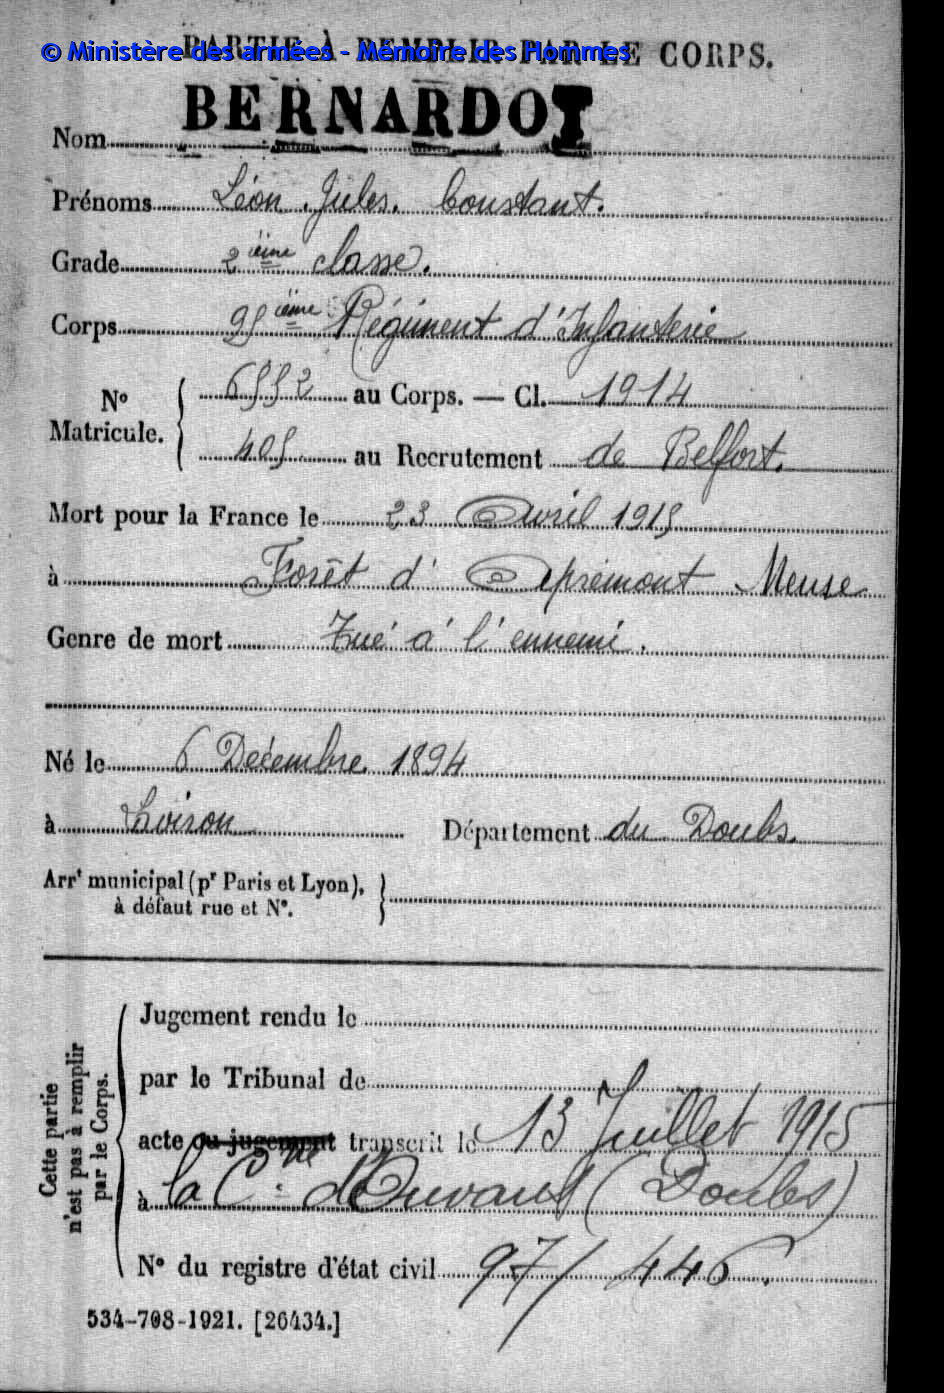 PARTIE À REMPLIR PAR LE CORPS.
© Ministère des armées - Mémoire des Hommes
Nom BERNARDOT
Prénoms Léon. Jules. Constant.
Grade 2ième classe.
Corps 95ième Régiment d'Infanterie
No Matricule. { 6552 au Corps. — Cl. 1914
405 au Recrutement de Belfort.
Mort pour la France le 23 Avril 1915
à Forêt d'Apremont Meuse
Genre de mort Tué à l'ennemi.
Né le 6 Décembre 1894
à Loison Département du Doubs.
Arrt municipal (pr Paris et Lyon),
à défaut rue et No.
Cette partie
n'est pas à remplir
par le Corps.
Jugement rendu le
par le Tribunal de
acte ou jugement transcrit le 13 Juillet 1915
à la Cne d'Ouvans (Doubs)
No du registre d'état civil 97/446.
534-708-1921. [26434.]